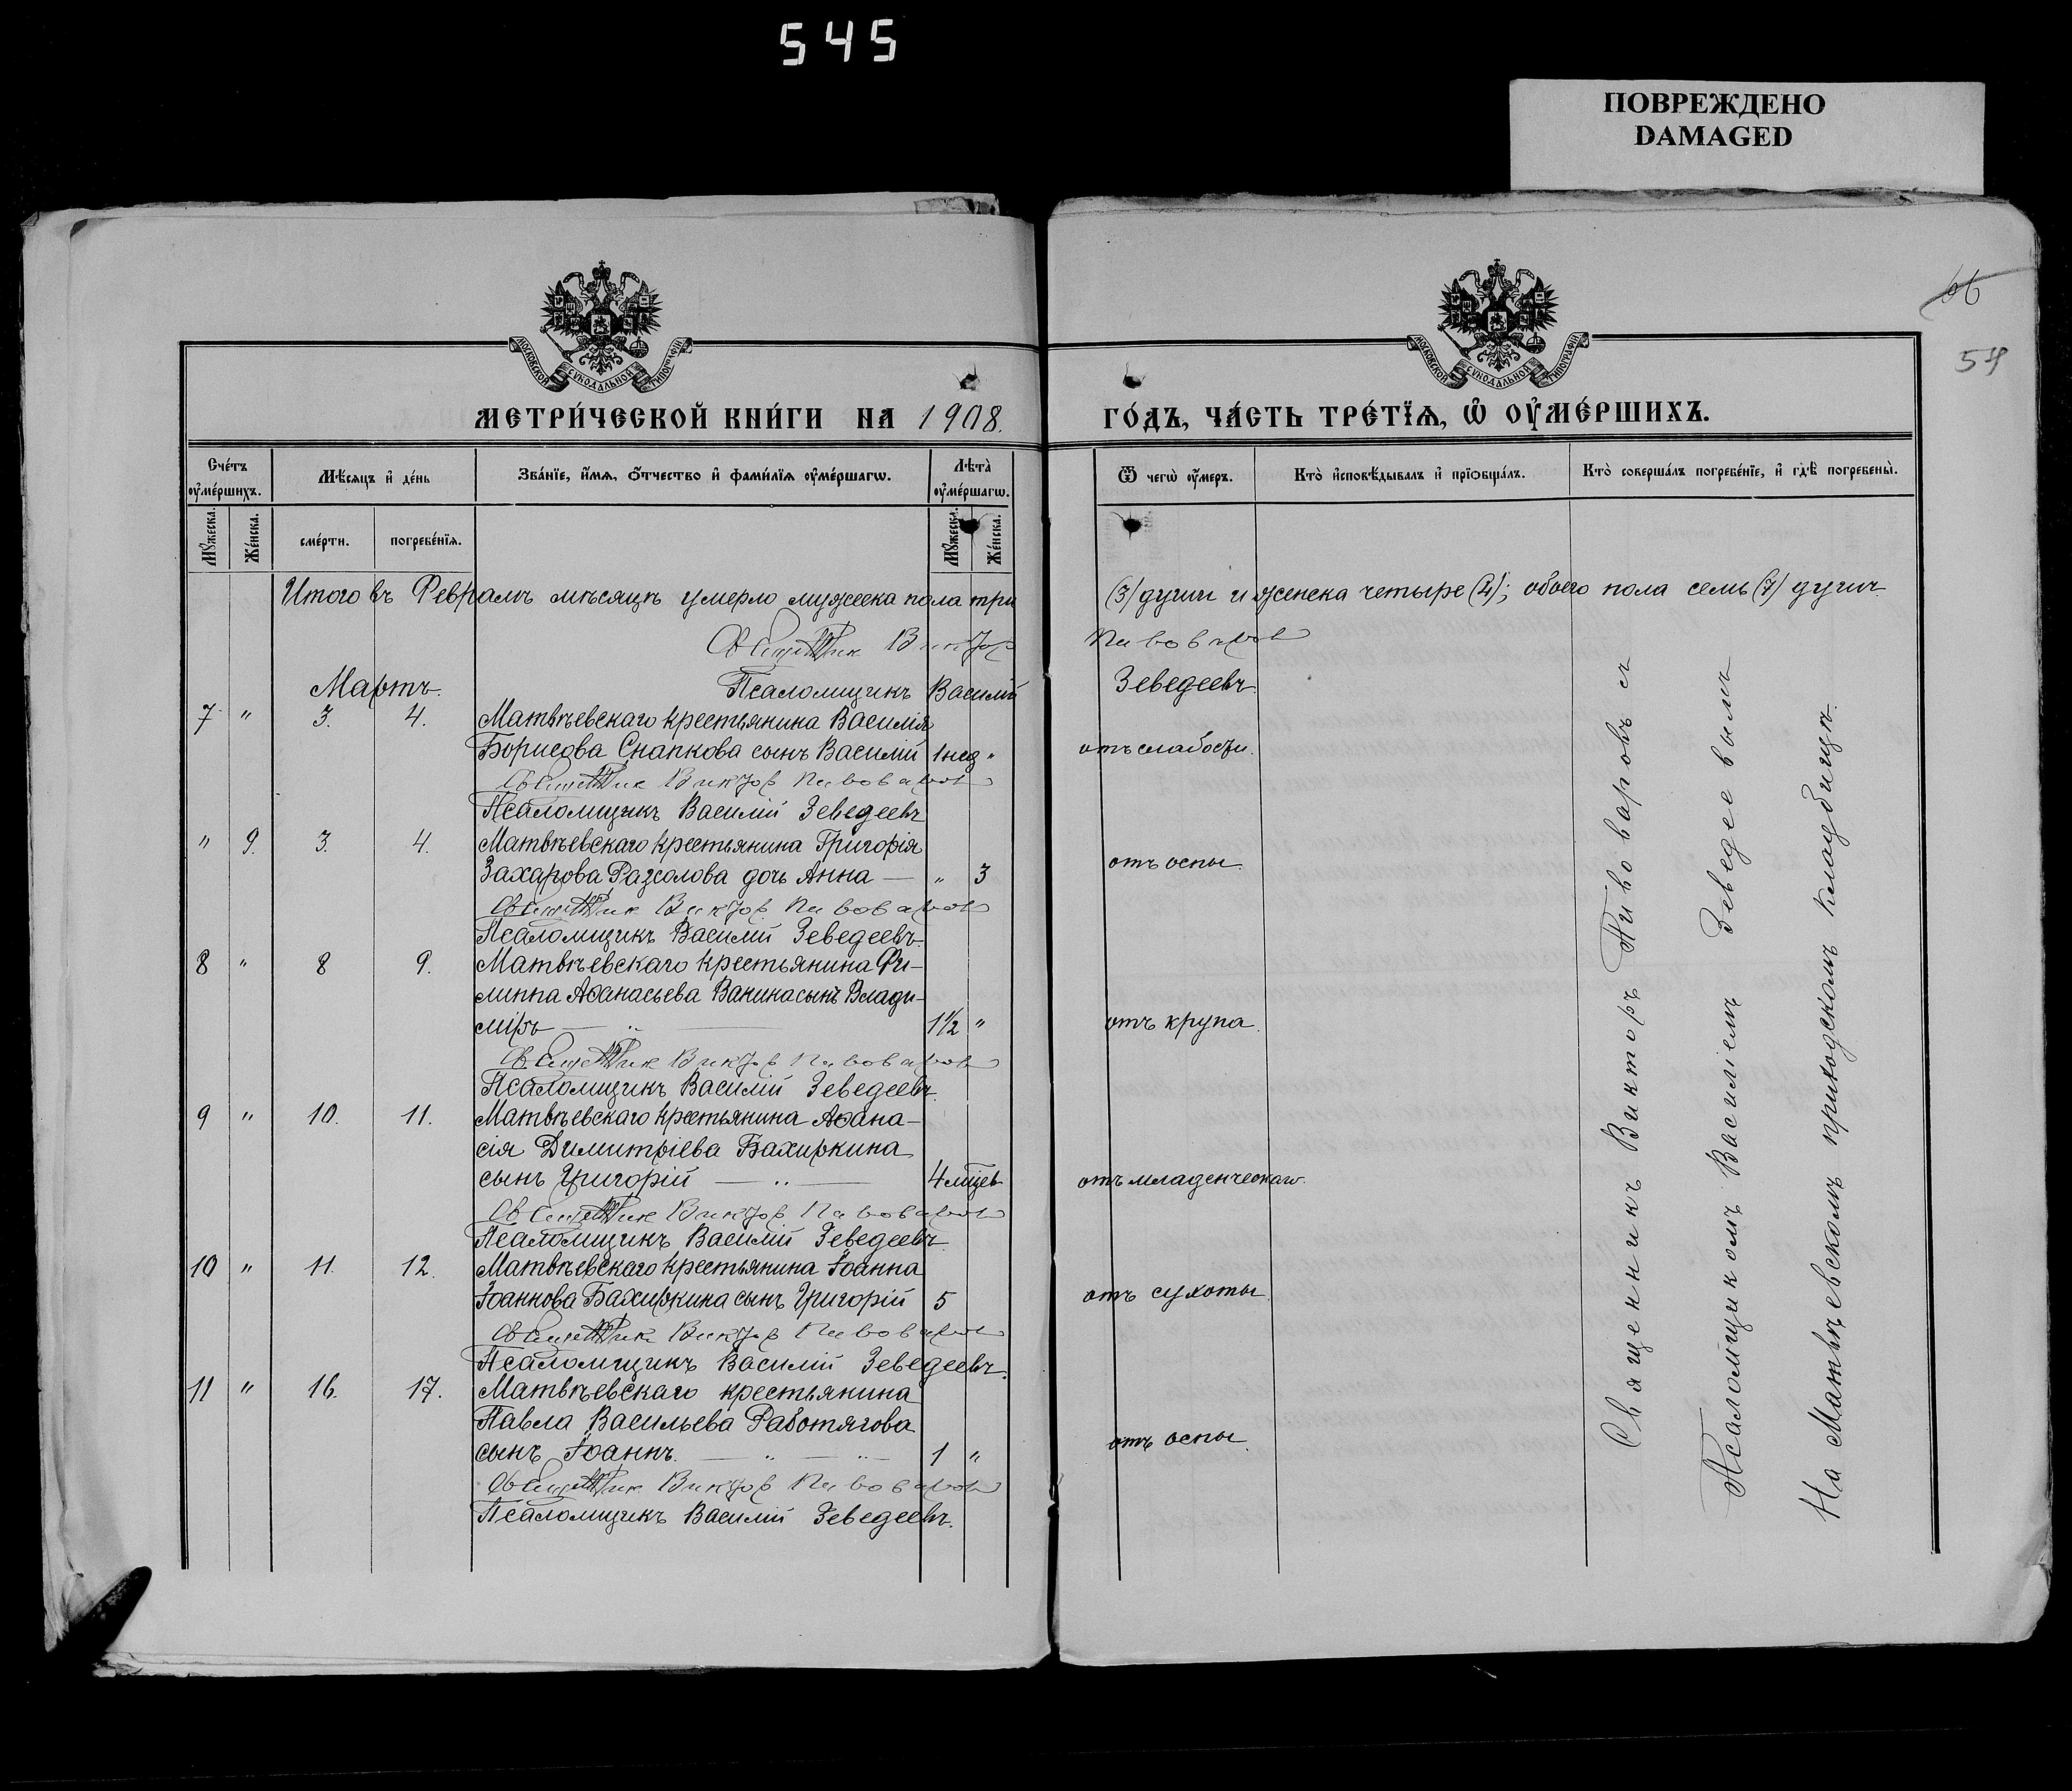 545
ПОВРЕЖДЕНО
DAMAGED
66
54
МОСКОВСКОЙ СѴНОДАЛЬНОЙ ТИПОГРАФІИ
МОСКОВСКОЙ СѴНОДАЛЬНОЙ ТИПОГРАФІИ
МЕТРИ́ЧЕСКОЙ КНИ́ГИ НА 1908. ГО́ДЪ, ЧА́СТЬ ТРЕ́ТЇѦ, Ѽ ОУ҆МЕ́РШИХЪ.
Сче́тъ оу҆ме́ршихъ.
Мѣ́сяцъ и҆ де́нь
Зва́нїе, и҆́мѧ, ѻ҆́тчество и҆ фами́лїѧ оу҆ме́ршагѡ.
Лѣ́та̀ оу҆ме́ршагѡ.
Ѿ чегѡ̀ оу҆́меръ.
Кто̀ и҆сповѣ́дывалъ и҆ прїѡбща́лъ.
Кто̀ соверша́лъ погребе́нїе, и҆ гдѣ̀ погребены̀.
Мꙋ́жеска.
Же́нска.
сме́рти.
погребе́нїѧ.
Мꙋ́жеска.
Же́нска.
Итого въ Февралѣ мѣсяцѣ умерло мужеска пола три (3) души и женска четыре (4); обоего пола семь (7) душъ.
Священник Виктор Пивоваров
Мартъ. Псаломщикъ Василій Зеведеевъ.
7 " 3. 4. Матвѣевскаго крестьянина Василія
Борисова Снапкова сынъ Василій 1 нед " отъ слабости.
Священник Виктор Пивоваров
Псаломщикъ Василій Зеведеевъ
" 9. 3. 4. Матвѣевскаго крестьянина Григорія
Захарова Разсолова дочь Анна — " 3 отъ оспы.
Священник Виктор Пивоваров
Псаломщикъ Василій Зеведеевъ.
8 " 8 9. Матвѣевскаго крестьянина Фи-
липпа Аѳанасьева Ванина сынъ Влади-
міръ — " — 1½ " отъ крупа.
Священник Виктор Пивоваров
Псаломщикъ Василій Зеведеевъ.
9 " 10. 11. Матвѣевскаго крестьянина Аѳана-
сія Димитріева Бахиркина
сынъ Григорій — " — 4 мцев отъ младенческаго.
Священник Виктор Пивоваров
Псаломщикъ Василій Зеведеевъ.
10 " 11. 12. Матвѣевскаго крестьянина Іоанна
Іоаннова Бахиркина сынъ Григорій 5 отъ сухоты.
Священник Виктор Пивоваров
Псаломщикъ Василій Зеведеевъ.
11 " 16. 17. Матвѣевскаго крестьянина
Павла Васильева Работягова
сынъ Іоаннъ. — " — " — 1 " отъ оспы.
Священник Виктор Пивоваров
Псаломщикъ Василій Зеведеевъ.
Священникъ Викторъ Пивоваровъ съ
Псаломщикомъ Василіемъ Зеведеевымъ
На Матвѣевскомъ приходскомъ кладбищѣ.